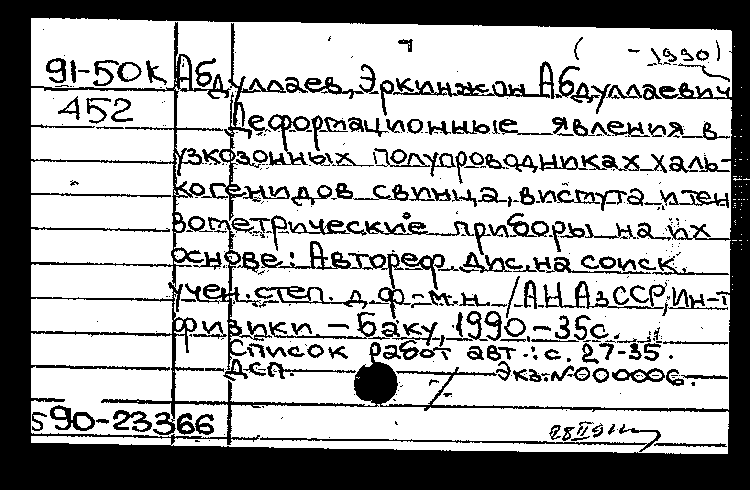 ( -1990)
91-50к Абдуллаев, Эркинжон Абдуллаевич
452
Деформационные явления в
узкозонных полупроводниках халь-
когенидов свинца, висмута и тен
зометрические приборы на их
основе: Автореф. дис. на соиск.
учен. степ. д. ф.-м. н. /АН АзССР, Ин-т
физики. - Баку, 1990. - 35с.
Список работ авт.: с. 27-35.
ДСП. Экз. №000006.
590-23366